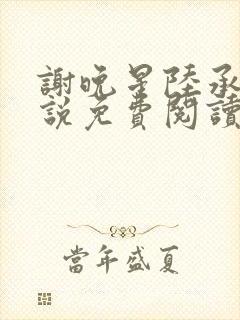 謝晚星陸承
說免費閱讀
當年盛夏